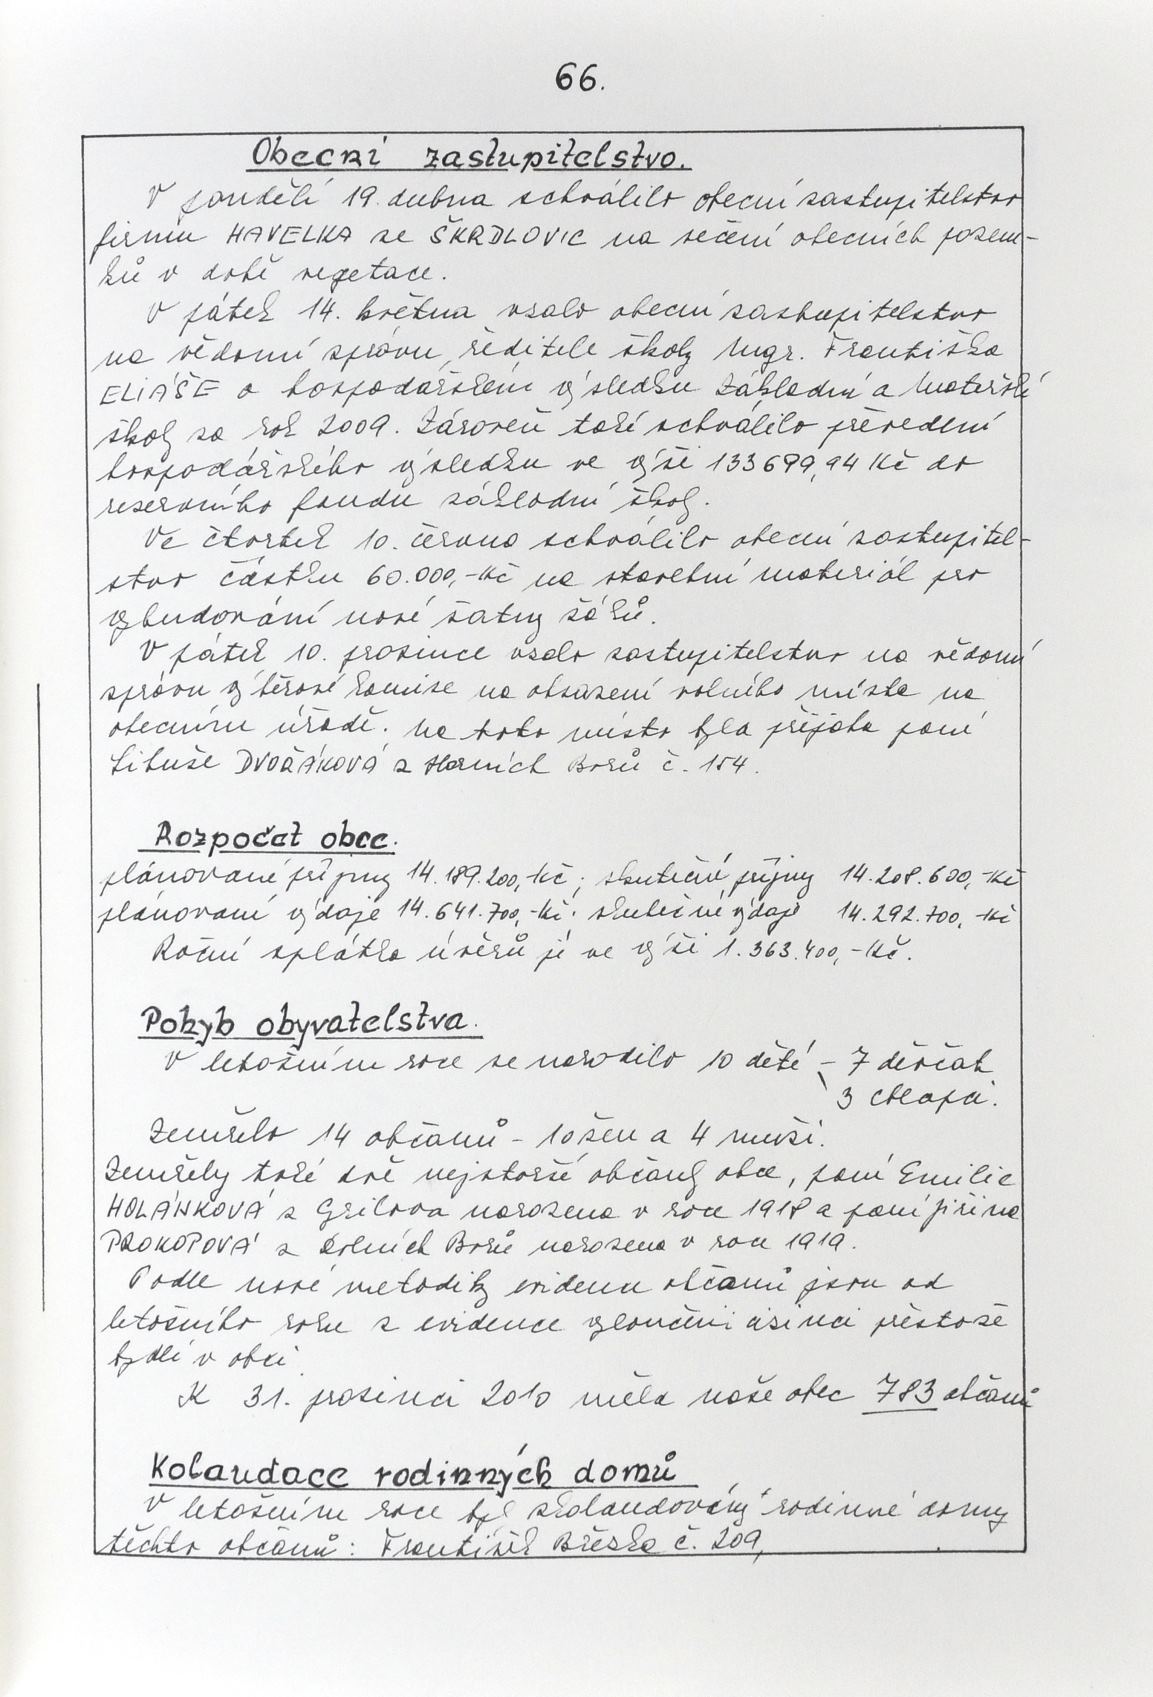 66.
Obecní zastupitelstvo.
V pondělí 19. dubna schválilo obecní zastupitelstvo
firmu HAVELKA ze ŠKRDLOVIC na sečení obecních pozem-
ků v době vegetace.
V pátek 14. května vzalo obecní zastupitelstvo
na vědomí zprávu ředitele školy Mgr. Františka
ELIÁŠE o hospodářském výsledku Základní a Mateřské
školy za rok 2009. Zároveň také schválilo převedení
hospodářského výsledku ve výši 133 699,94 Kč do
rezervního fondu základní školy.
Ve čtvrtek 10. června schválilo obecní zastupitel-
stvo částku 60.000,-Kč na stavební materiál pro
vybudování nové šatny žáků.
V pátek 10. prosince vzalo zastupitelstvo na vědomí
zprávu výběrové komise na obsazení volného místa na
obecním úřadě. Na toto místo byla přijata paní
Libuše DVOŘÁKOVÁ z Horních Borů č. 154.
Rozpočet obce.
plánované příjmy 14.189.200,-Kč; skutečné příjmy 14.208.600,-Kč
plánované výdaje 14.641.700,-Kč; skutečné výdaje 14.292.700,-Kč
Roční splátka úvěrů je ve výši 1.363.400,-Kč.
Pohyb obyvatelstva.
V letošním roce se narodilo 10 dětí – 7 děvčat
3 chlapci.
Zemřelo 14 občanů – 10 žen a 4 muži.
Zemřely také dvě nejstarší občanky obce, paní Emilie
HOLÁNKOVÁ z Cyrilova narozena v roce 1918 a paní Jiřina
PROKOPOVÁ z Dolních Borů narozena v roce 1919.
Podle nové metodiky evidence občanů jsou od
letošního roku z evidence vyloučeni cizinci přestože
bydlí v obci.
K 31. prosinci 2010 měla naše obec 783 občanů
Kolaudace rodinných domů
V letošním roce byly zkolaudovány rodinné domy
těchto občanů: František Břězka č. 209,